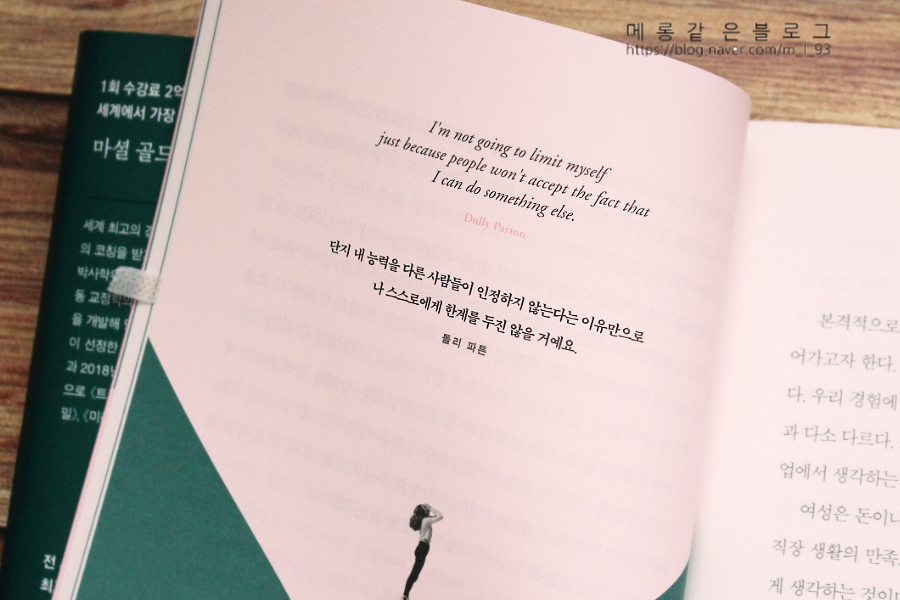 메롱같은블로그
https://blog.naver.com/m_l_93
I'm not going to limit myself
just because people won't accept the fact that
I can do something else.
Dolly Parton
단지 내 능력을 다른 사람들이 인정하지 않는다는 이유만으로
나 스스로에게 한계를 두진 않을 거예요.
돌리 파튼
1회 수강료 2억
세계에서 가장
마셜 골드
세계 최고의
의 코칭을 받
박사학
동 교정
을 개발해
이 선정한
과 2018년
으로 〈트
밀〉, 〈미
전
최
본격적으로
어가고자 한다.
다. 우리 경험에
과 다소 다르다.
업에서 생각하는
여성은 돈이나
직장 생활의 만족
게 생각하는 것이